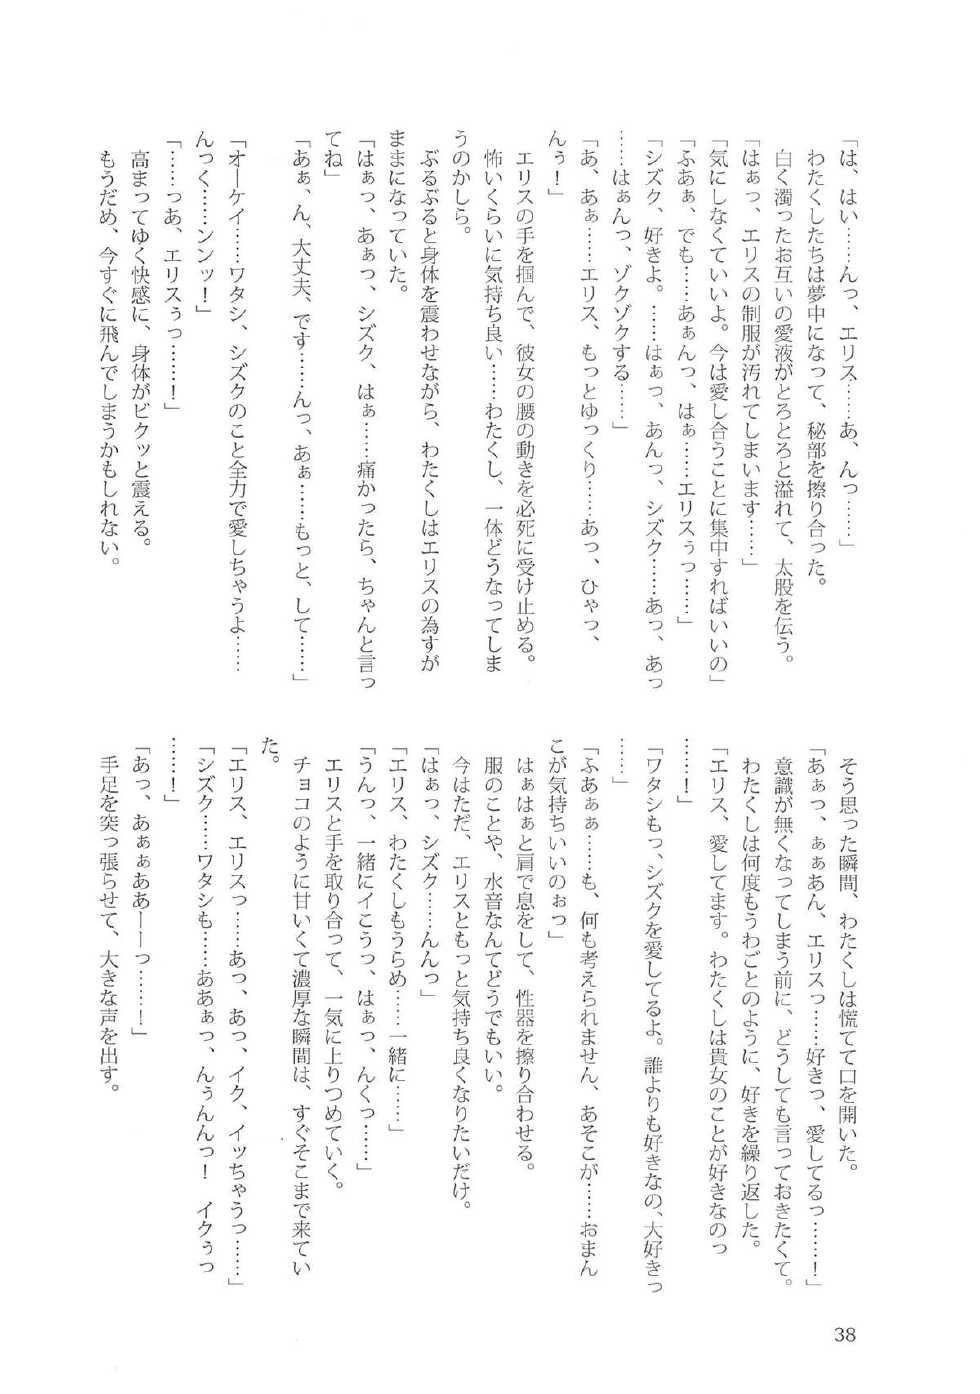 「は、はい……んっ、エリス……あ、んっ……」
わたくしたちは夢中になって、秘部を擦り合った。
白く濁ったお互いの愛液がとろとろと溢れて、太股を伝う。
「はぁっ、エリスの制服が汚れてしまいます……」
「気にしなくていいよ。今は愛し合うことに集中すればいいの」
「ふあぁ、でも……あぁんっ、はぁ……エリスぅっ……」
「シズク、好きよ。……はぁっ、あんっ、シズク……あっ、あっ
……はぁんっ、ゾクゾクする……」
「あ、あぁ……エリス、もっとゆっくり……あっ、ひゃっ、
んぅ！」
エリスの手を掴んで、彼女の腰の動きを必死に受け止める。
怖いくらいに気持ち良い……わたくし、一体どうなってしま
うのかしら。
ぶるぶると身体を震わせながら、わたくしはエリスの為すが
ままになっていた。
「はぁっ、あぁっ、シズク、はぁ……痛かったら、ちゃんと言っ
てね」
「あぁ、ん、大丈夫、です……んっ、あぁ……もっと、して……」
「オーケイ……ワタシ、シズクのこと全力で愛しちゃうよ……
んっく……ンンッ！」
「……っあ、エリスぅっ……！」
高まってゆく快感に、身体がビクッと震える。
もうだめ、今すぐに飛んでしまうかもしれない。
そう思った瞬間、わたくしは慌てて口を開いた。
「あぁっ、ぁぁあん、エリスっ……好きっ、愛してるっ……！」
意識が無くなってしまう前に、どうしても言っておきたくて。
わたくしは何度もうわごとのように、好きを繰り返した。
「エリス、愛してます。わたくしは貴女のことが好きなのっ
……！」
「ワタシもっ、シズクを愛してるよ。誰よりも好きなの、大好きっ
……」
「ふあぁぁ……も、何も考えられません、あそこが……おまん
こが気持ちいいのぉっ」
はぁはぁと肩で息をして、性器を擦り合わせる。
服のことや、水音なんてどうでもいい。
今はただ、エリスともっと気持ち良くなりたいだけ。
「はぁっ、シズク……んんっ」
「エリス、わたくしもうらめ……一緒に……」
「うんっ、一緒にイこうっ、はぁっ、んくっ……」
エリスと手を取り合って、一気に上りつめていく。
チョコのように甘いくて濃厚な瞬間は、すぐそこまで来てい
た。
「エリス、エリスっ……あっ、あっ、イク、イッちゃうっ……」
「シズク……ワタシも……ああぁっ、んぅんんっ！　イクぅっ
……！」
「あっ、あぁぁああーーっ……！」
手足を突っ張らせて、大きな声を出す。
38